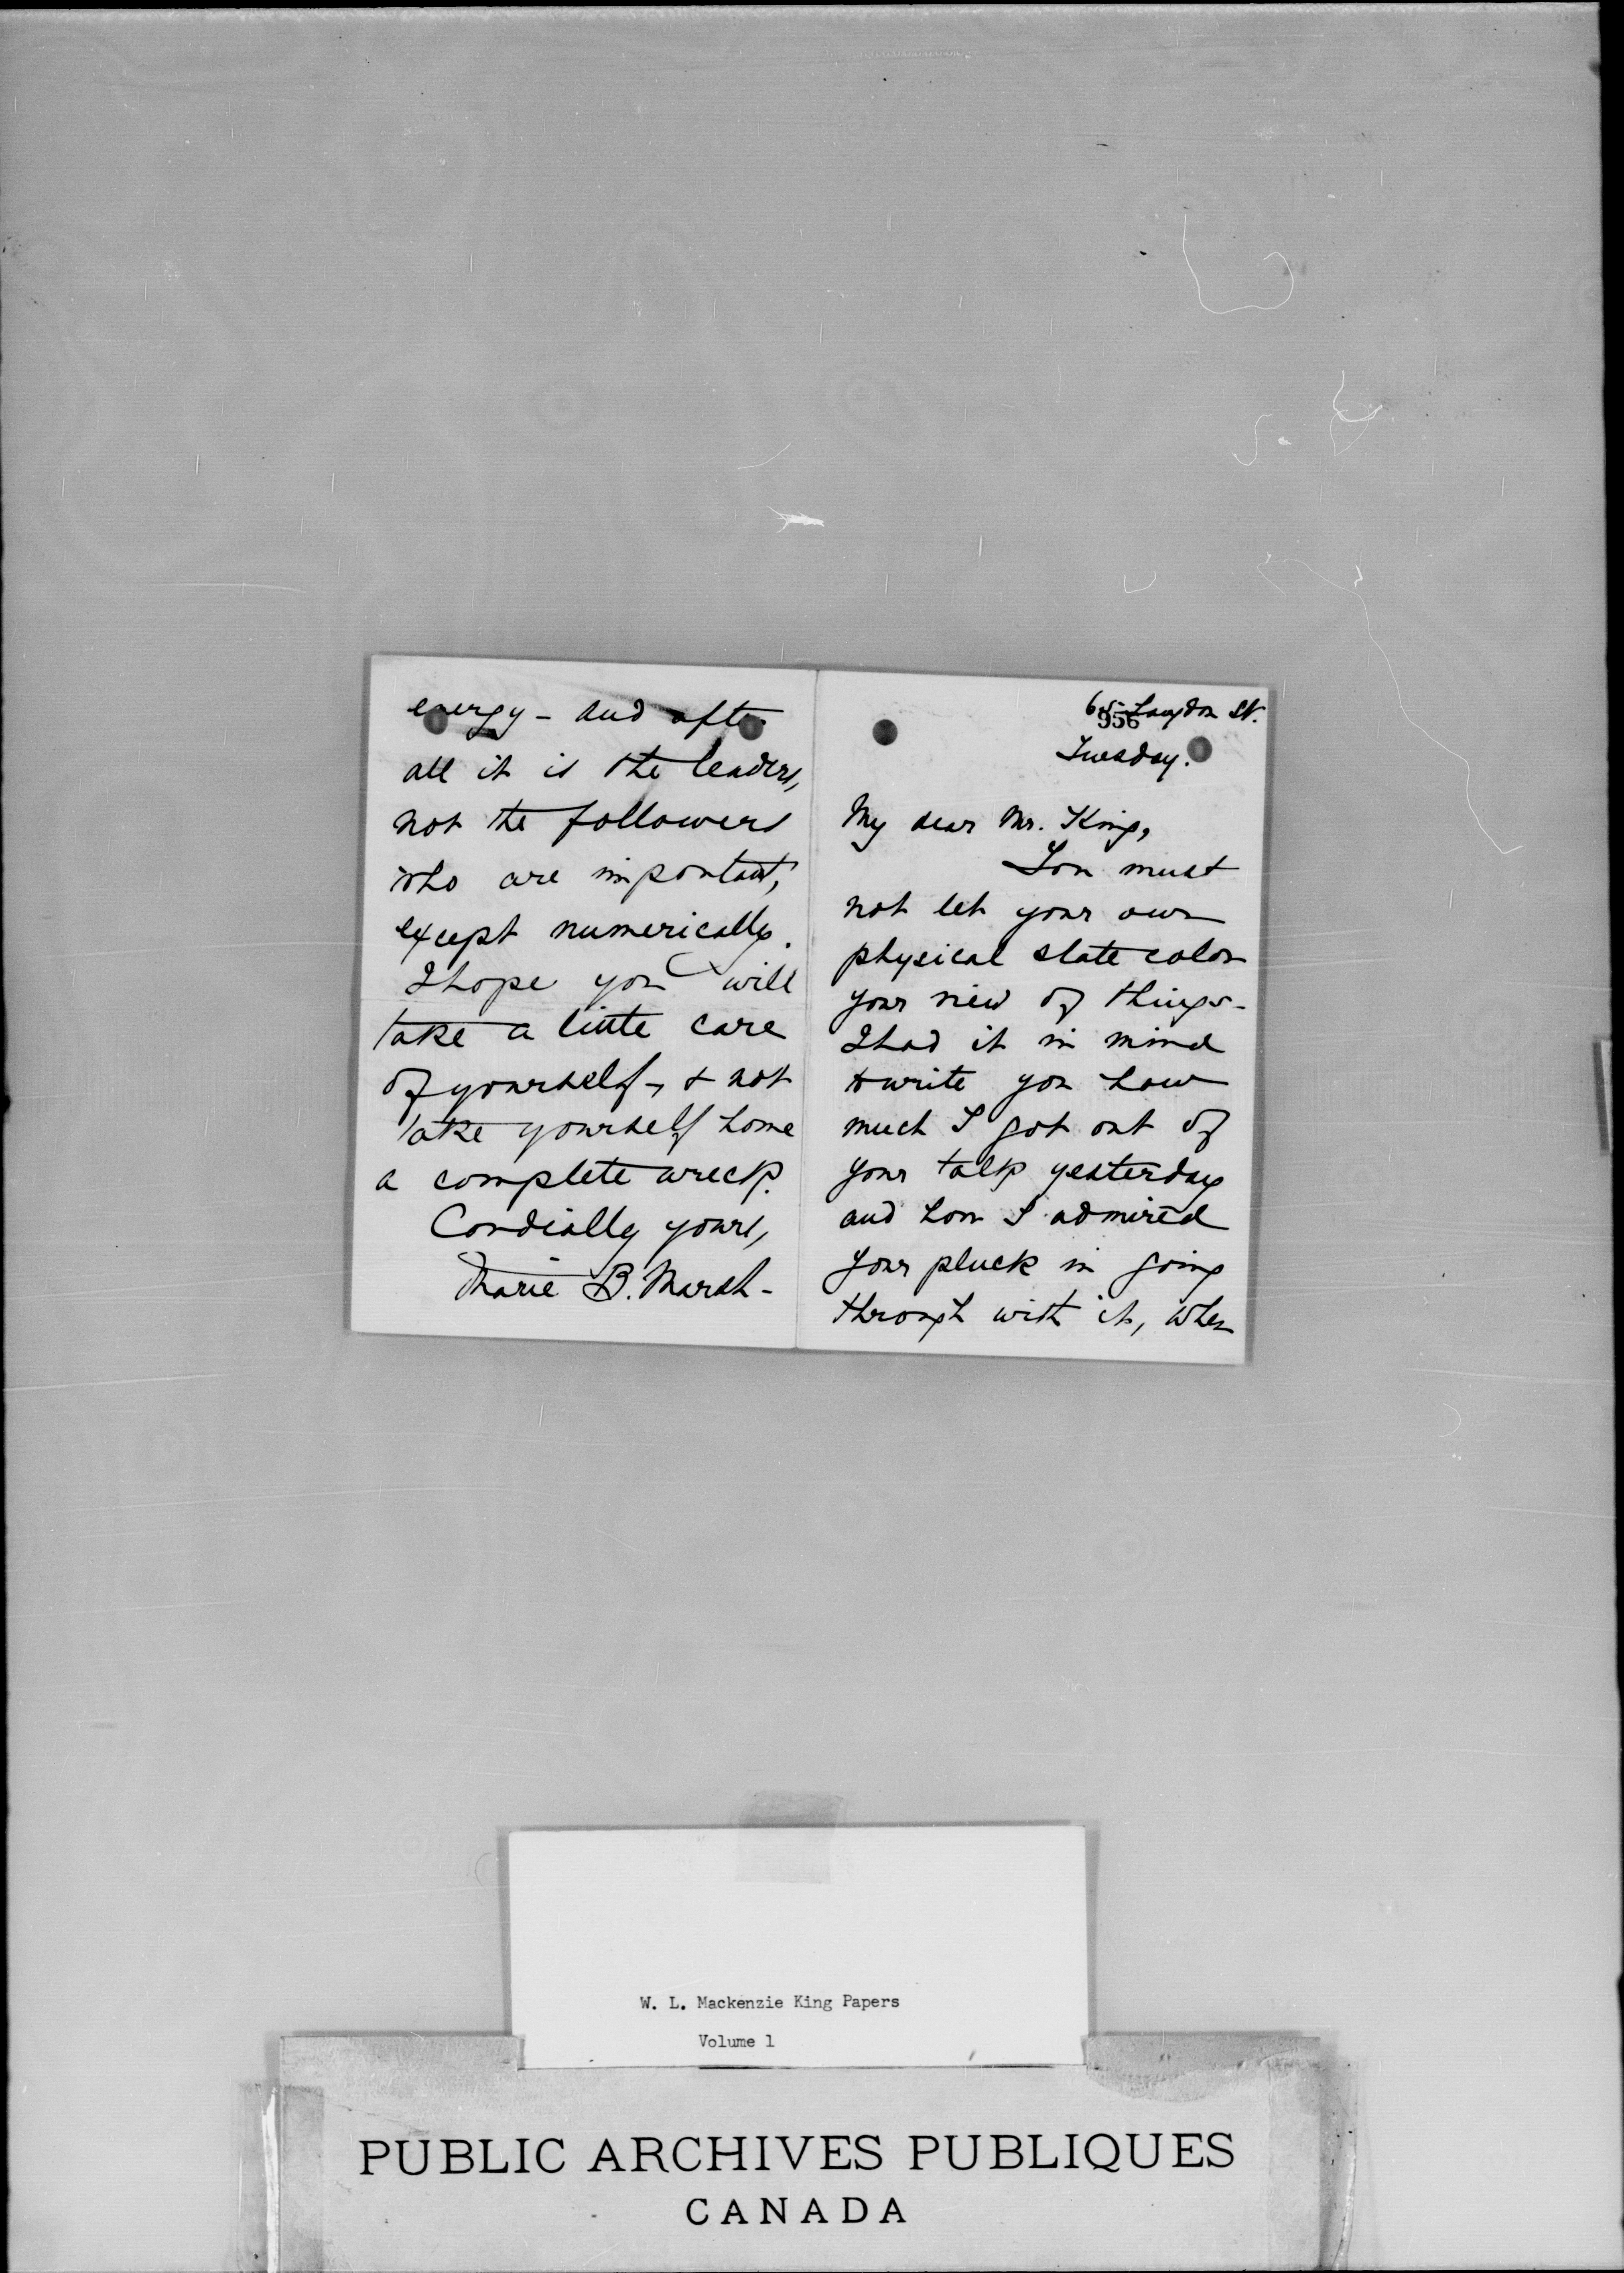 energy - and after
all it is the leaders,
not the followers
who are important,
except numerically.
I hope you will
take a little care
of yourself, & not
take yourself home
a complete wreck.
Cordially yours,
Marie B. Marsh -
65 Langdon St.
956
Tuesday.
My dear Mr. King,
You must
not let your own
physical state color
your view of things -
I had it in mind
to write you how
much I got out of
your talk yesterday
and how I admired
your pluck in going
through with it, when
W. L. Mackenzie King Papers
Volume 1
PUBLIC ARCHIVES PUBLIQUES
CANADA